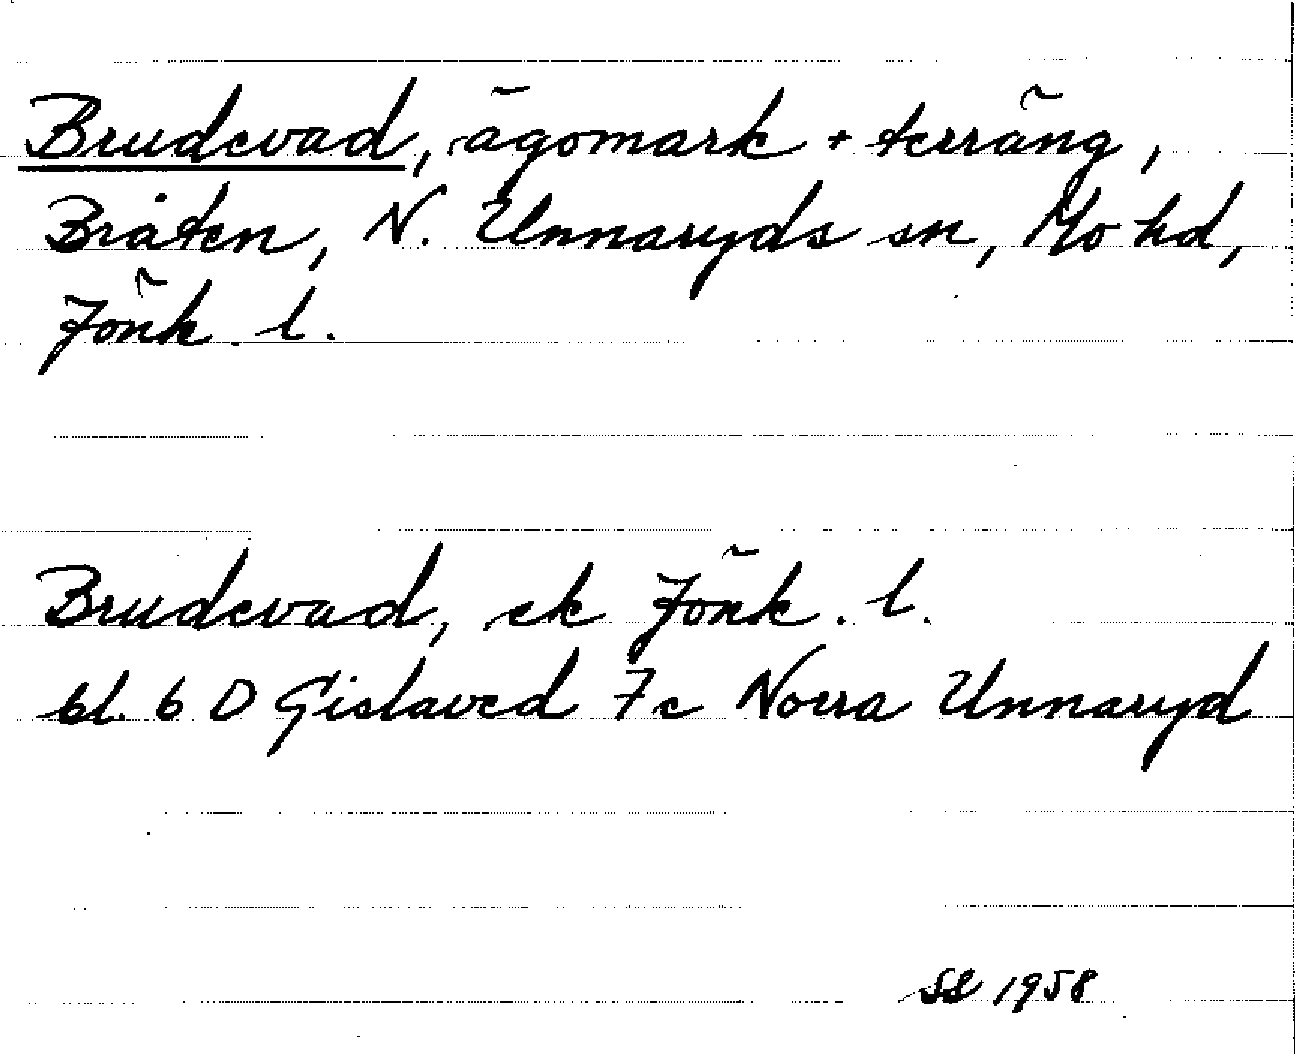 Brudevad, ägomark + terräng,
Bråten, N. Unnaryds sn, Mo hd,
Jönk. l.
Brudevad, ek Jönk. l.
bl. 6 D Gislaved 7c Norra Unnaryd
SL 1958